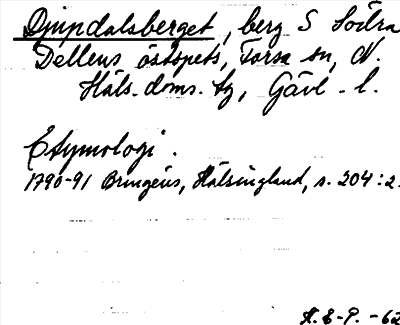 Djupdalsberget, berg S Södra
Dellens östspets, Forsa sn, N.
Häls. doms. tg, Gävl. l.
Etymologi.
1790-91 Bringéus, Hälsingland, s. 204:2.
H. E-P. -62